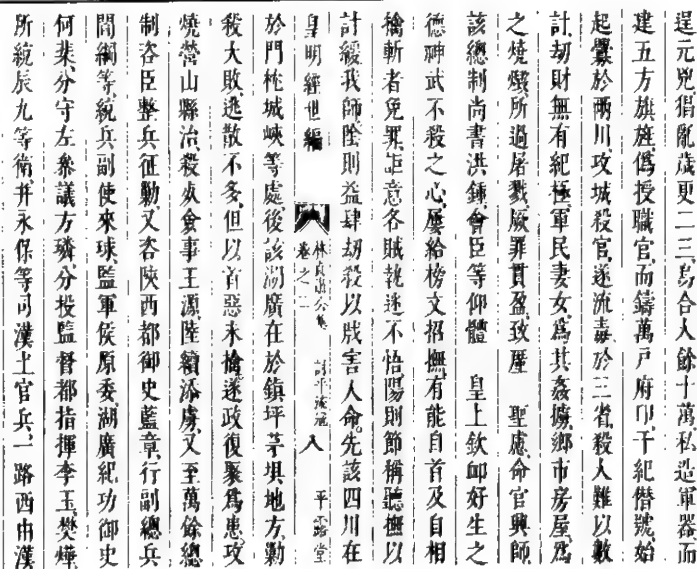 逞元兇猖亂歲更二三烏合人餘十萬私造軍器而
建五方旗旌僞授職官而鑄萬戶府印干紀僭號始
起釁於兩川攻城殺官遂流毒於三省殺人難以數
計刼財無有紀極軍民妻女爲其姦擄鄉市房屋爲
之燒燬所過屠戮厥罪貫盈致厪 聖慮命官興師
該總制尚書洪鍾會臣等仰體 皇上欽卹好生之
德神武不殺之心屢給榜文招撫有能自首及自相
擒斬者免罪詎意各賊執迷不悟陽則節稱聽撫以
計緩我師陰則益肆刼殺以戕害人命先該四川在
皇明經世編 林貞肅公集 卷之二 討平流寇 八 平露堂
於門枕城峽等處後該湖廣在於鎮坪茅垻地方勦
殺大敗逃散不多但以首惡未擒遂致復聚爲患攻
燒營山縣治殺死僉事王源陸續添虜又至萬餘總
制咨臣整兵征勦又咨陝西都御史藍章行副總兵
閻綱等統兵副使來球監軍侯原委湖廣紀功御史
何棐分守左叅議方璘分投監督都指揮李玉樊燁
所統辰九等衛并永保等司漢土官兵一路西由漢